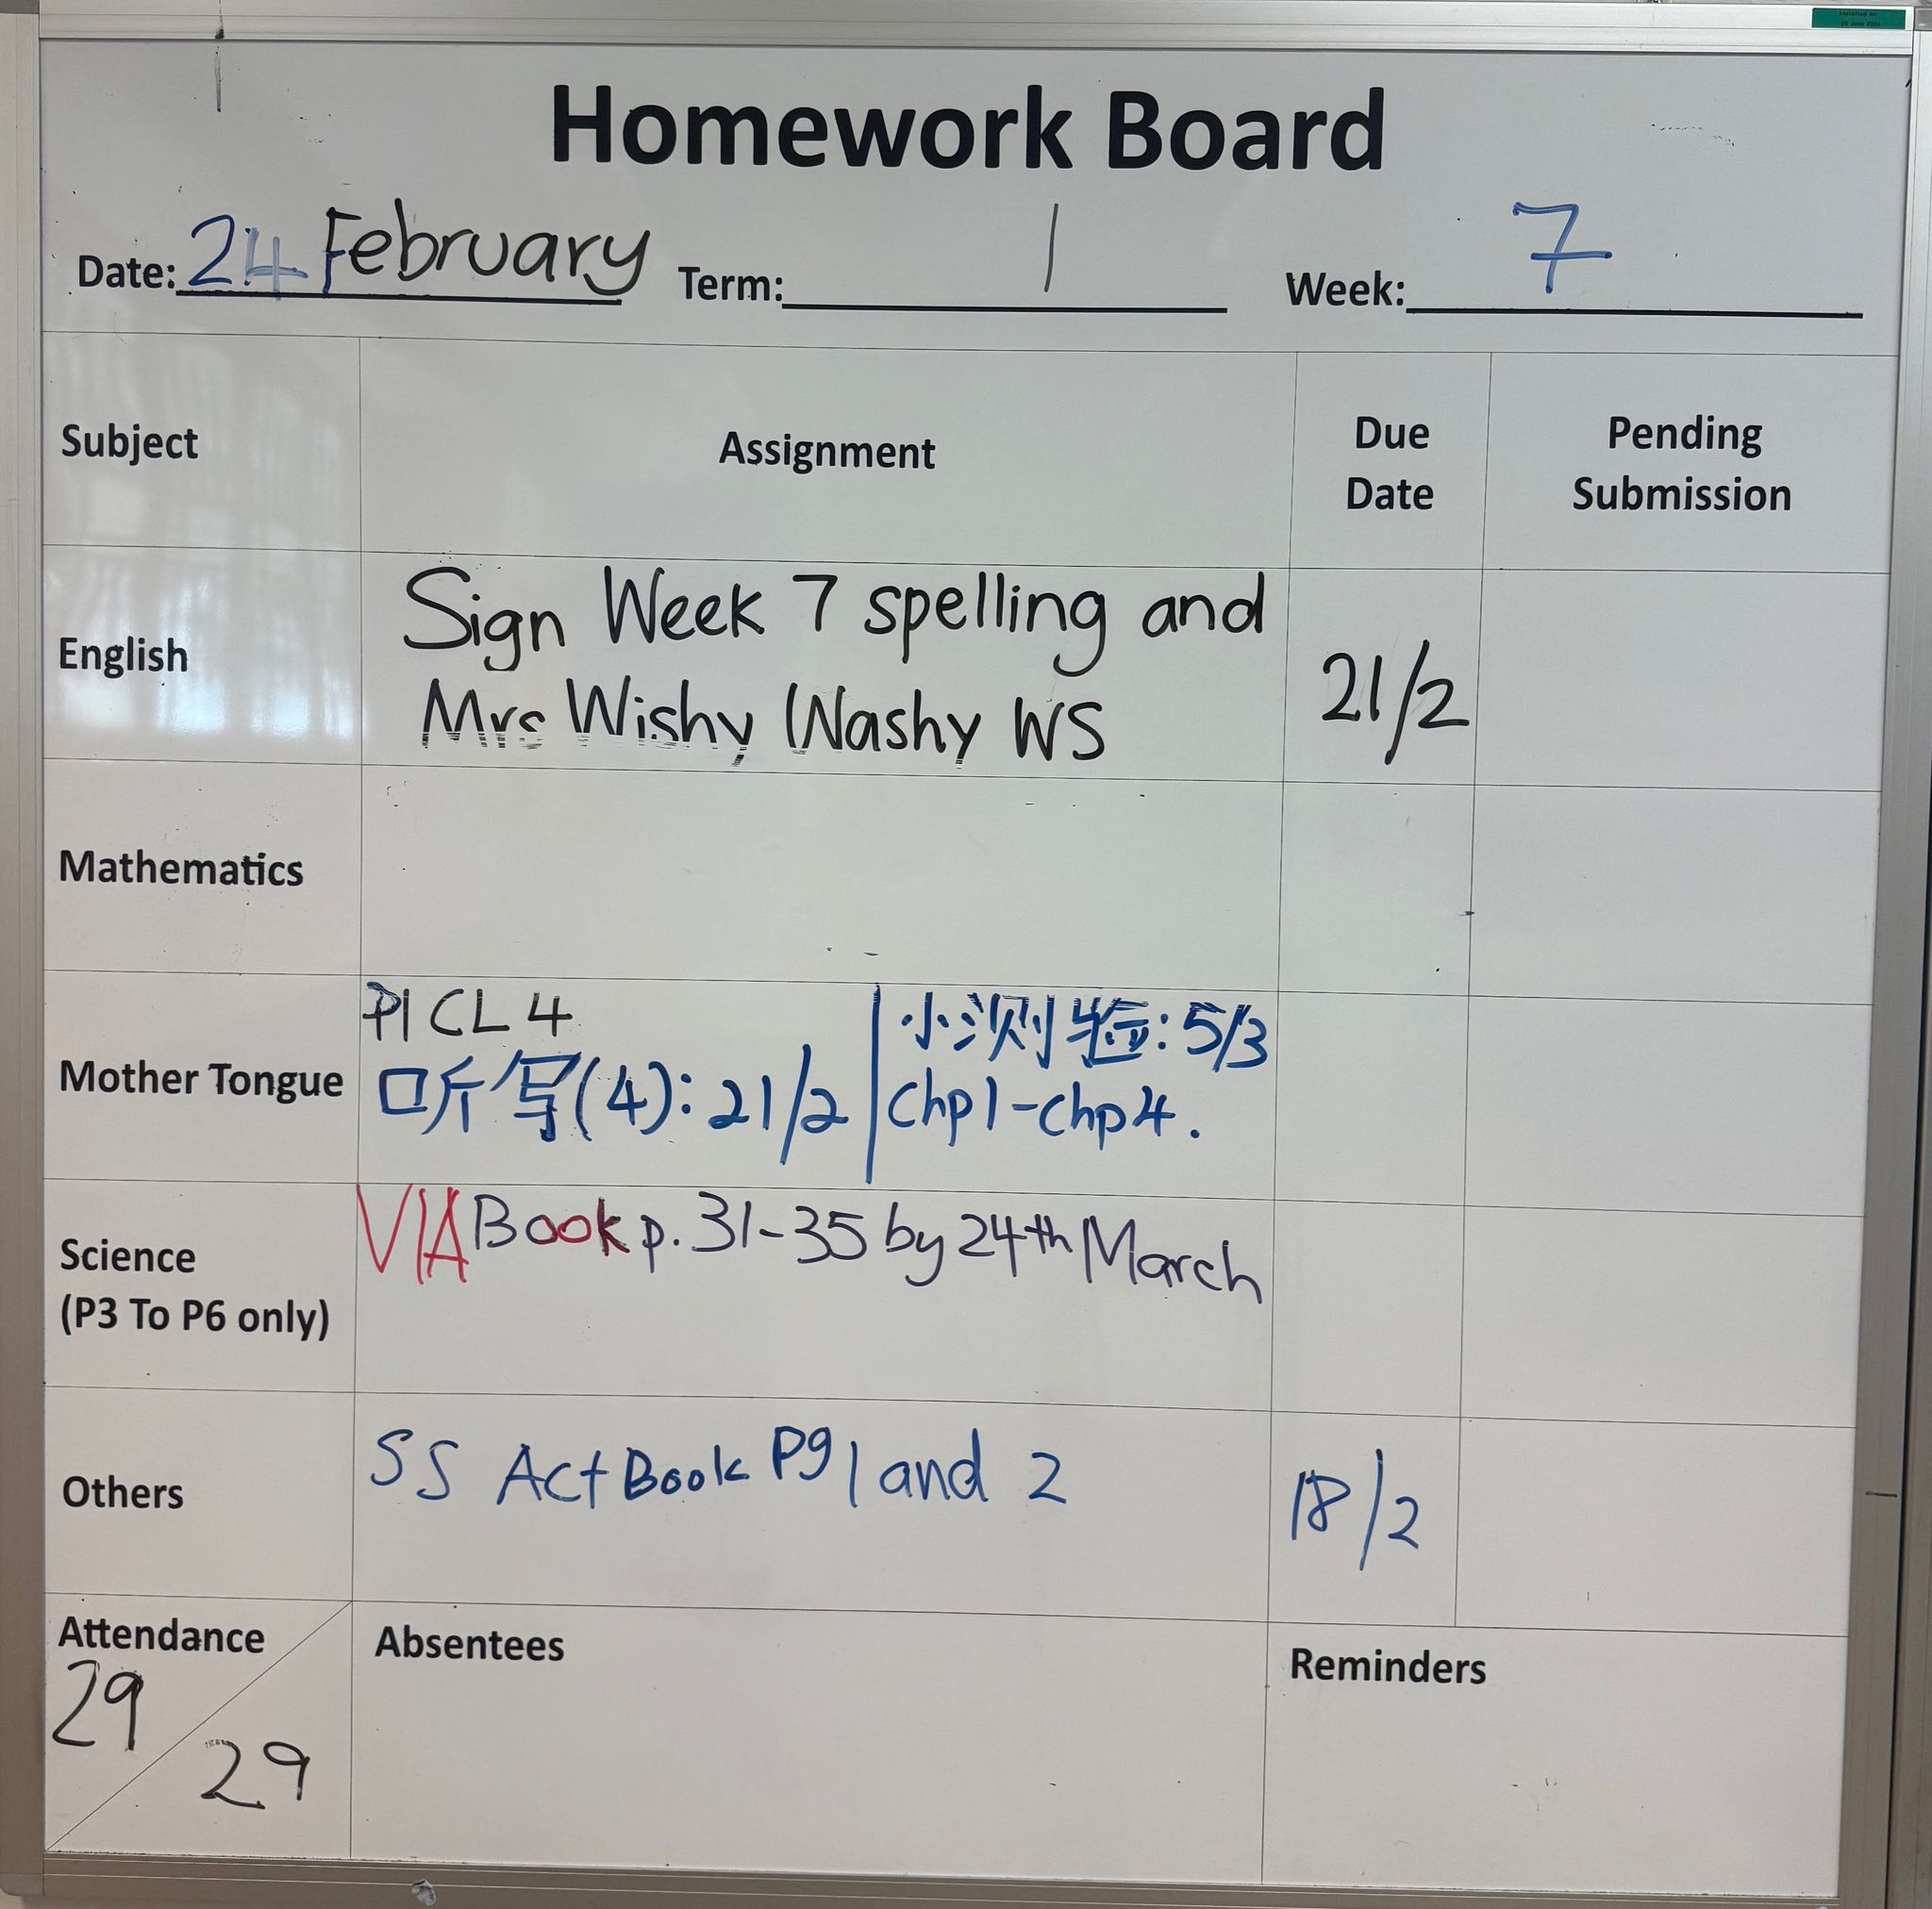 Installed on
Homework Board
Date: 24 February Term: 1 Week: 7
Subject Assignment Due Date Pending Submission
English
Sign Week 7 spelling and
Mrs Wishy Washy WS
21/2
Mathematics
Mother Tongue
P1 CL 4
听写(4): 21/2
小测验: 5/3
Chp1-Chp4.
Science
(P3 To P6 only)
VIA Book p. 31-35 by 24th March
Others
SS Act Book Pg 1 and 2
18/2
Attendance
29
29
Absentees
Reminders